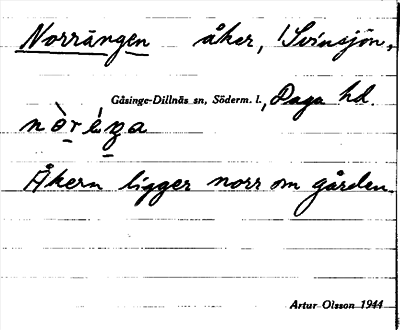 Norrängen åker, 1 Svinsjön,
Gåsinge-Dillnäs sn, Söderm. l., Daga hd
Åkern ligger norr om gården.
Artur Olsson 1944